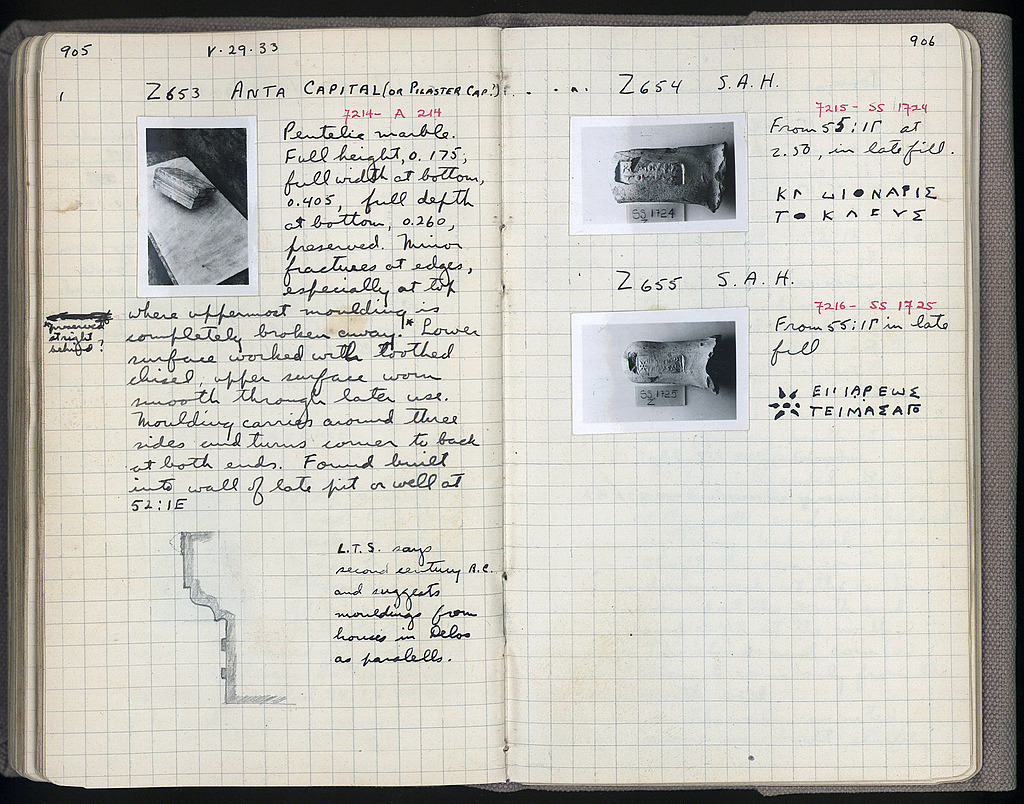 905
V·29·33
1
Z653 ANTA CAPITAL (OR PILASTER CAP?)
7214- A 214
Pentelic marble.
Full height, 0.175;
full width at bottom,
0.405, full depth
at bottom, 0.260,
preserved. Minor
fractures at edges,
especially at top
where uppermost moulding is
completely broken away!* Lower
surface worked with toothed
chisel, upper surface worn
smooth through later use.
Moulding carries around three
sides and turns corner to back
at both ends. Found built
into wall of late pit or well at
52:ΙΕ
*preserved
at right
behind?
L.T.S. says
second century B.C.
and suggests
mouldings from
houses in Delos
as paralells.
906
Z654 S.A.H.
7215- SS 1724
From 55:ΙΓ at
2.50, in late fill.
SS 1724
Z655 S.A.H.
7216- SS 1725
From 55:ΙΓ in late
fill
SS 1725
Z
ΤΕΙΜΑΣΑΓΟ